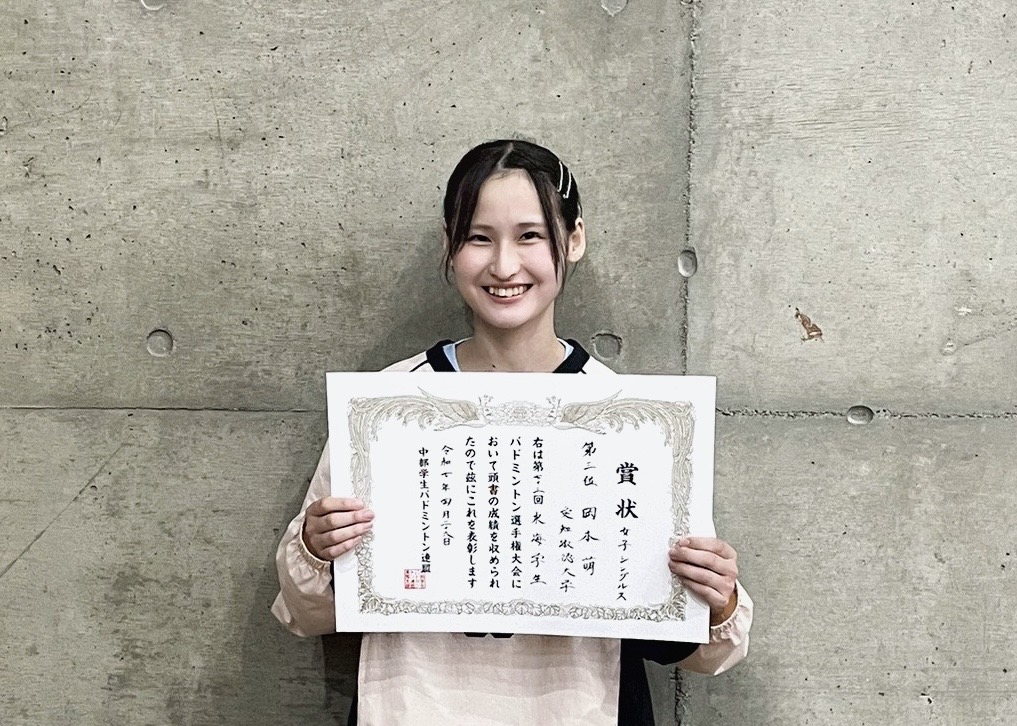 賞状
女子シングルス
第三位 岡本萌
愛知淑徳大学
右は第 回東海学生
バドミントン選手権大会に
おいて頭書の成績を収められ
たので茲にこれを表彰します
令和七年四月 日
中部学生バドミントン連盟